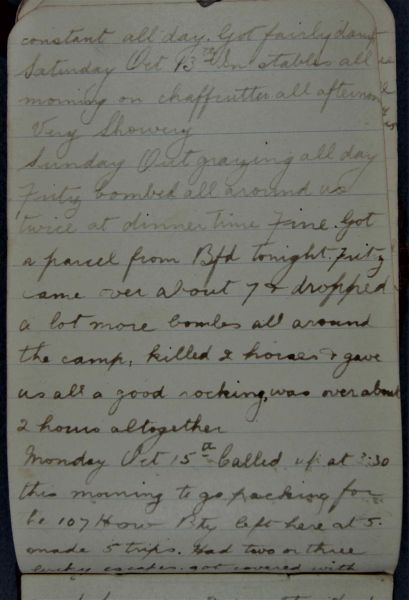 constant all day. Got fairly damp
Saturday Oct 13th In stables all
morning on chaffcutter all afternoon
Very Showery
Sunday Out grazing all day
Fritz bombed all around us
twice at dinner time Fine. Got
a parcel from Bfd tonight. Fritz
came over about 7 & dropped
a lot more bombs all around
the camp, killed 2 horses & gave
us all a good rocking, was over about
2 hours altogether
Monday Oct 15th Called up at 3.30
this morning to go packing for
107 How Bty left here at 5.
made 5 trips. Had two or three
lucky escapes. got covered with